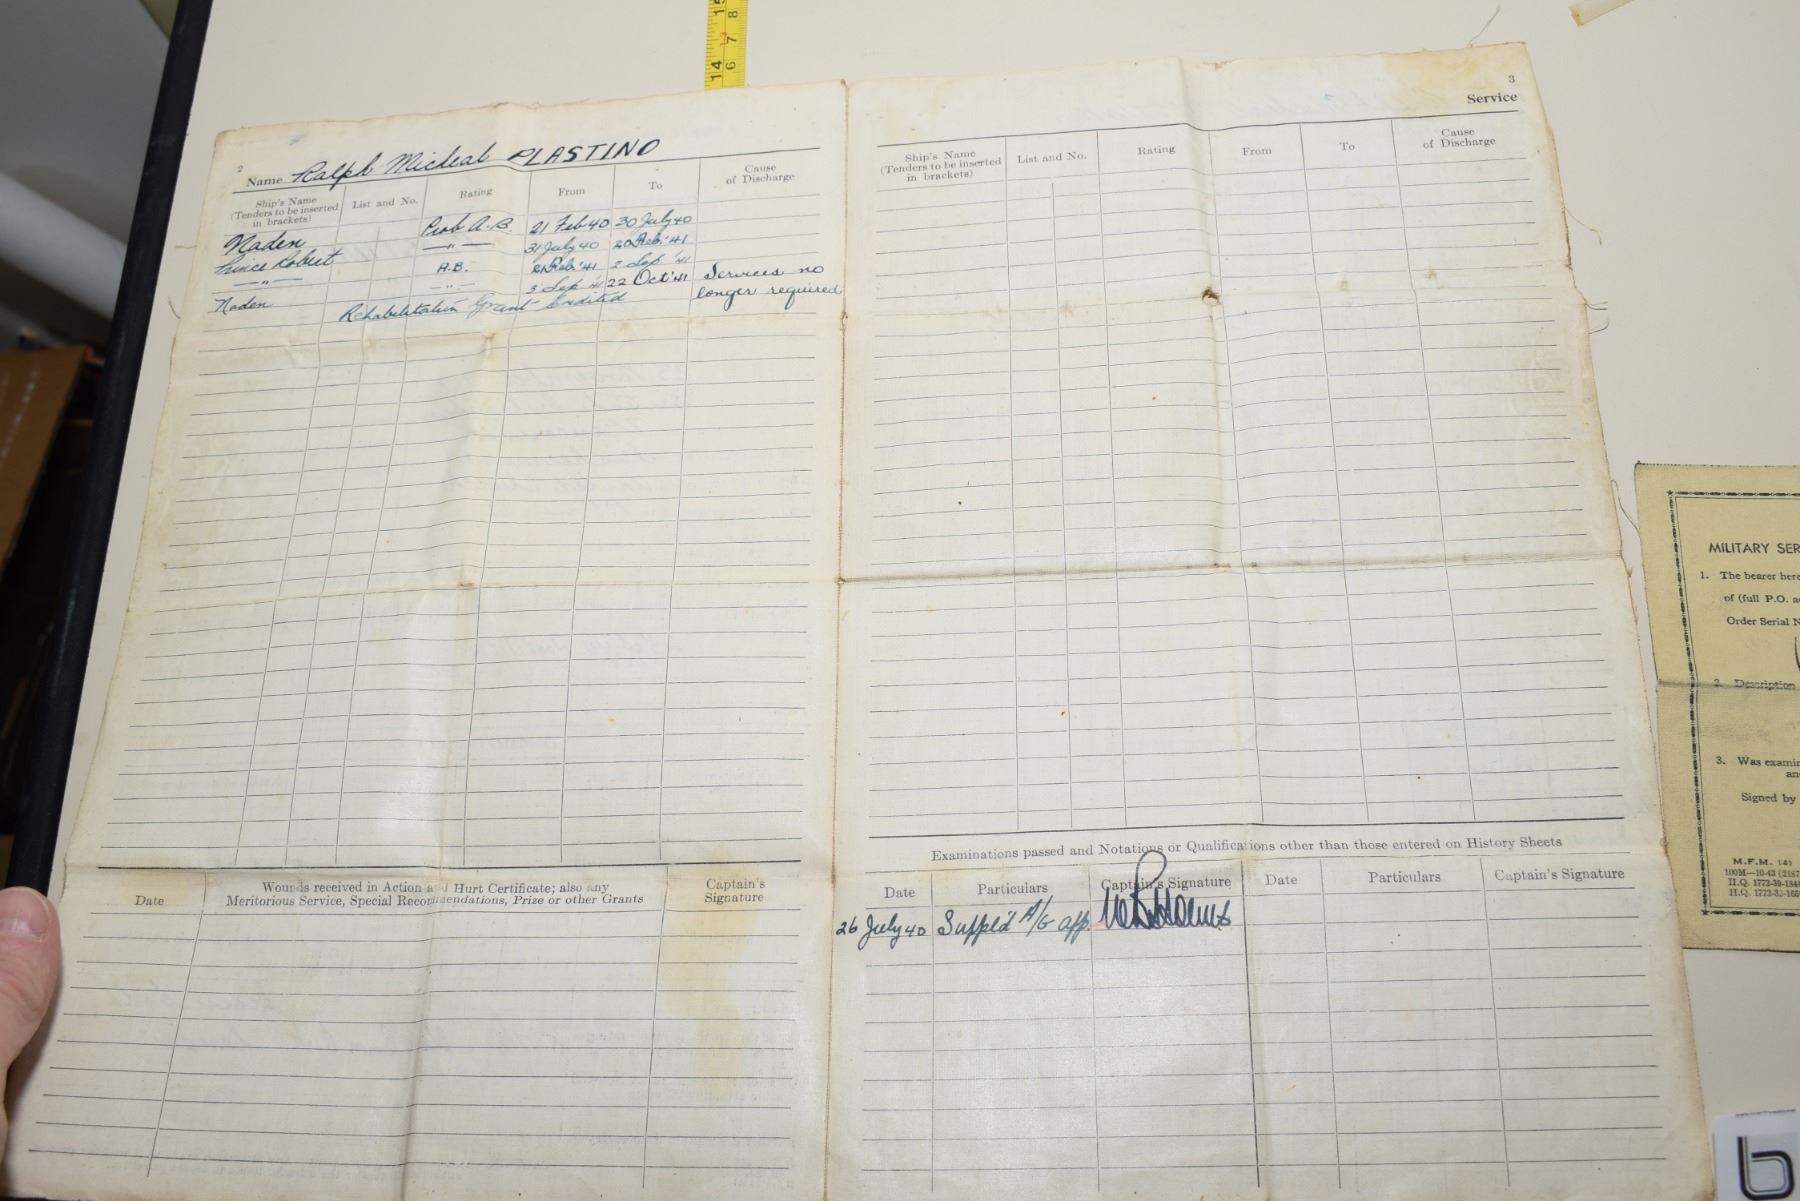 2
Name Ralph Micheal PLASTINO
Ship's Name
(Tenders to be inserted
in brackets)
List and No.
Rating
From
To
Cause
of Discharge
Naden Prob A.B. 21 Feb 40 30 July 40
Prince Robert —"— 31 July 40 20 Feb. '41
—"— A.B. 21 Feb. '41 2 Sep. '41
Naden —"— 3 Sep '41 22 Oct '41 Services no
longer required
Rehabilitation Grant Credited
Date
Wounds received in Action and Hurt Certificate; also any
Meritorious Service, Special Recommendations, Prize or other Grants
Captain's
Signature
3
Service
Ship's Name
(Tenders to be inserted
in brackets)
List and No.
Rating
From
To
Cause
of Discharge
Examinations passed and Notations or Qualifications other than those entered on History Sheets
Date Particulars Captain's Signature Date Particulars Captain's Signature
26 July 40 Suppl'd A/G app.
MILITARY SER
1. The bearer here
of (full P.O. a
Order Serial N
2. Description
3. Was examin
an
Signed by
M.F.M. 141
100M—10-43 (2187
H.Q. 1772-39-184
H.Q. 1772-39-166
14 15
6 7 8
13
b